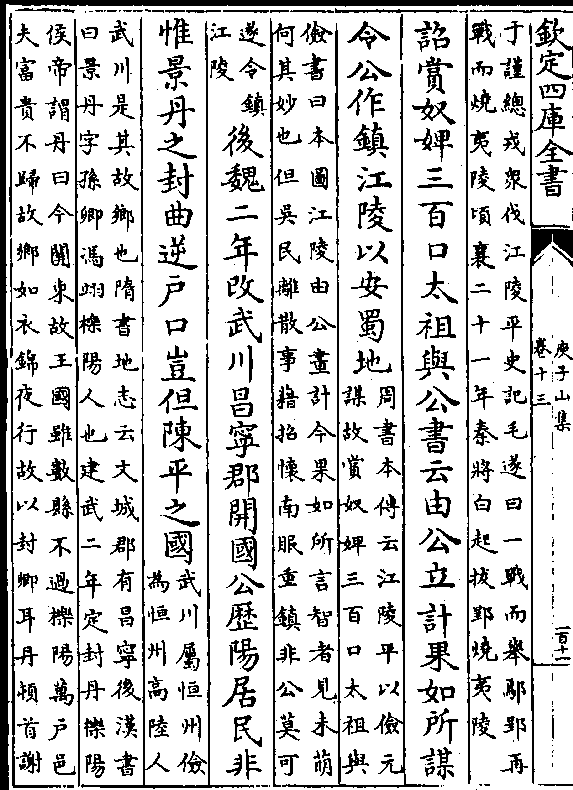 欽定四庫全書
庾子山集
卷十三
一百十一
于謹總戎衆伐江陵平史記毛遂曰一戰而舉鄢郢再
戰而燒夷陵頃襄二十一年秦將白起拔郢燒夷陵
詔賞奴婢三百口太祖與公書云由公立計果如所謀
令公作鎮江陵以安蜀地
周書本傳云江陵平以儉元
謀故賞奴婢三百口太祖與
儉書曰本圖江陵由公畫計今果如所言智者見未萌
何其妙也但吳民離散事藉招懷南服重鎮非公莫可
遂令鎮
江陵
後魏二年改武川昌寧郡開國公歷陽居民非
惟景丹之封曲逆戶口豈但陳平之國
武川屬恒州儉
為恒州高陸人
武川是其故鄉也隋書地志云文城郡有昌寧後漢書
曰景丹字孫卿馮翊櫟陽人也建武二年定封丹櫟陽
侯帝謂丹曰今關東故王國雖數縣不過櫟陽萬戶邑
夫富貴不歸故鄉如衣錦夜行故以封卿耳丹頓首謝